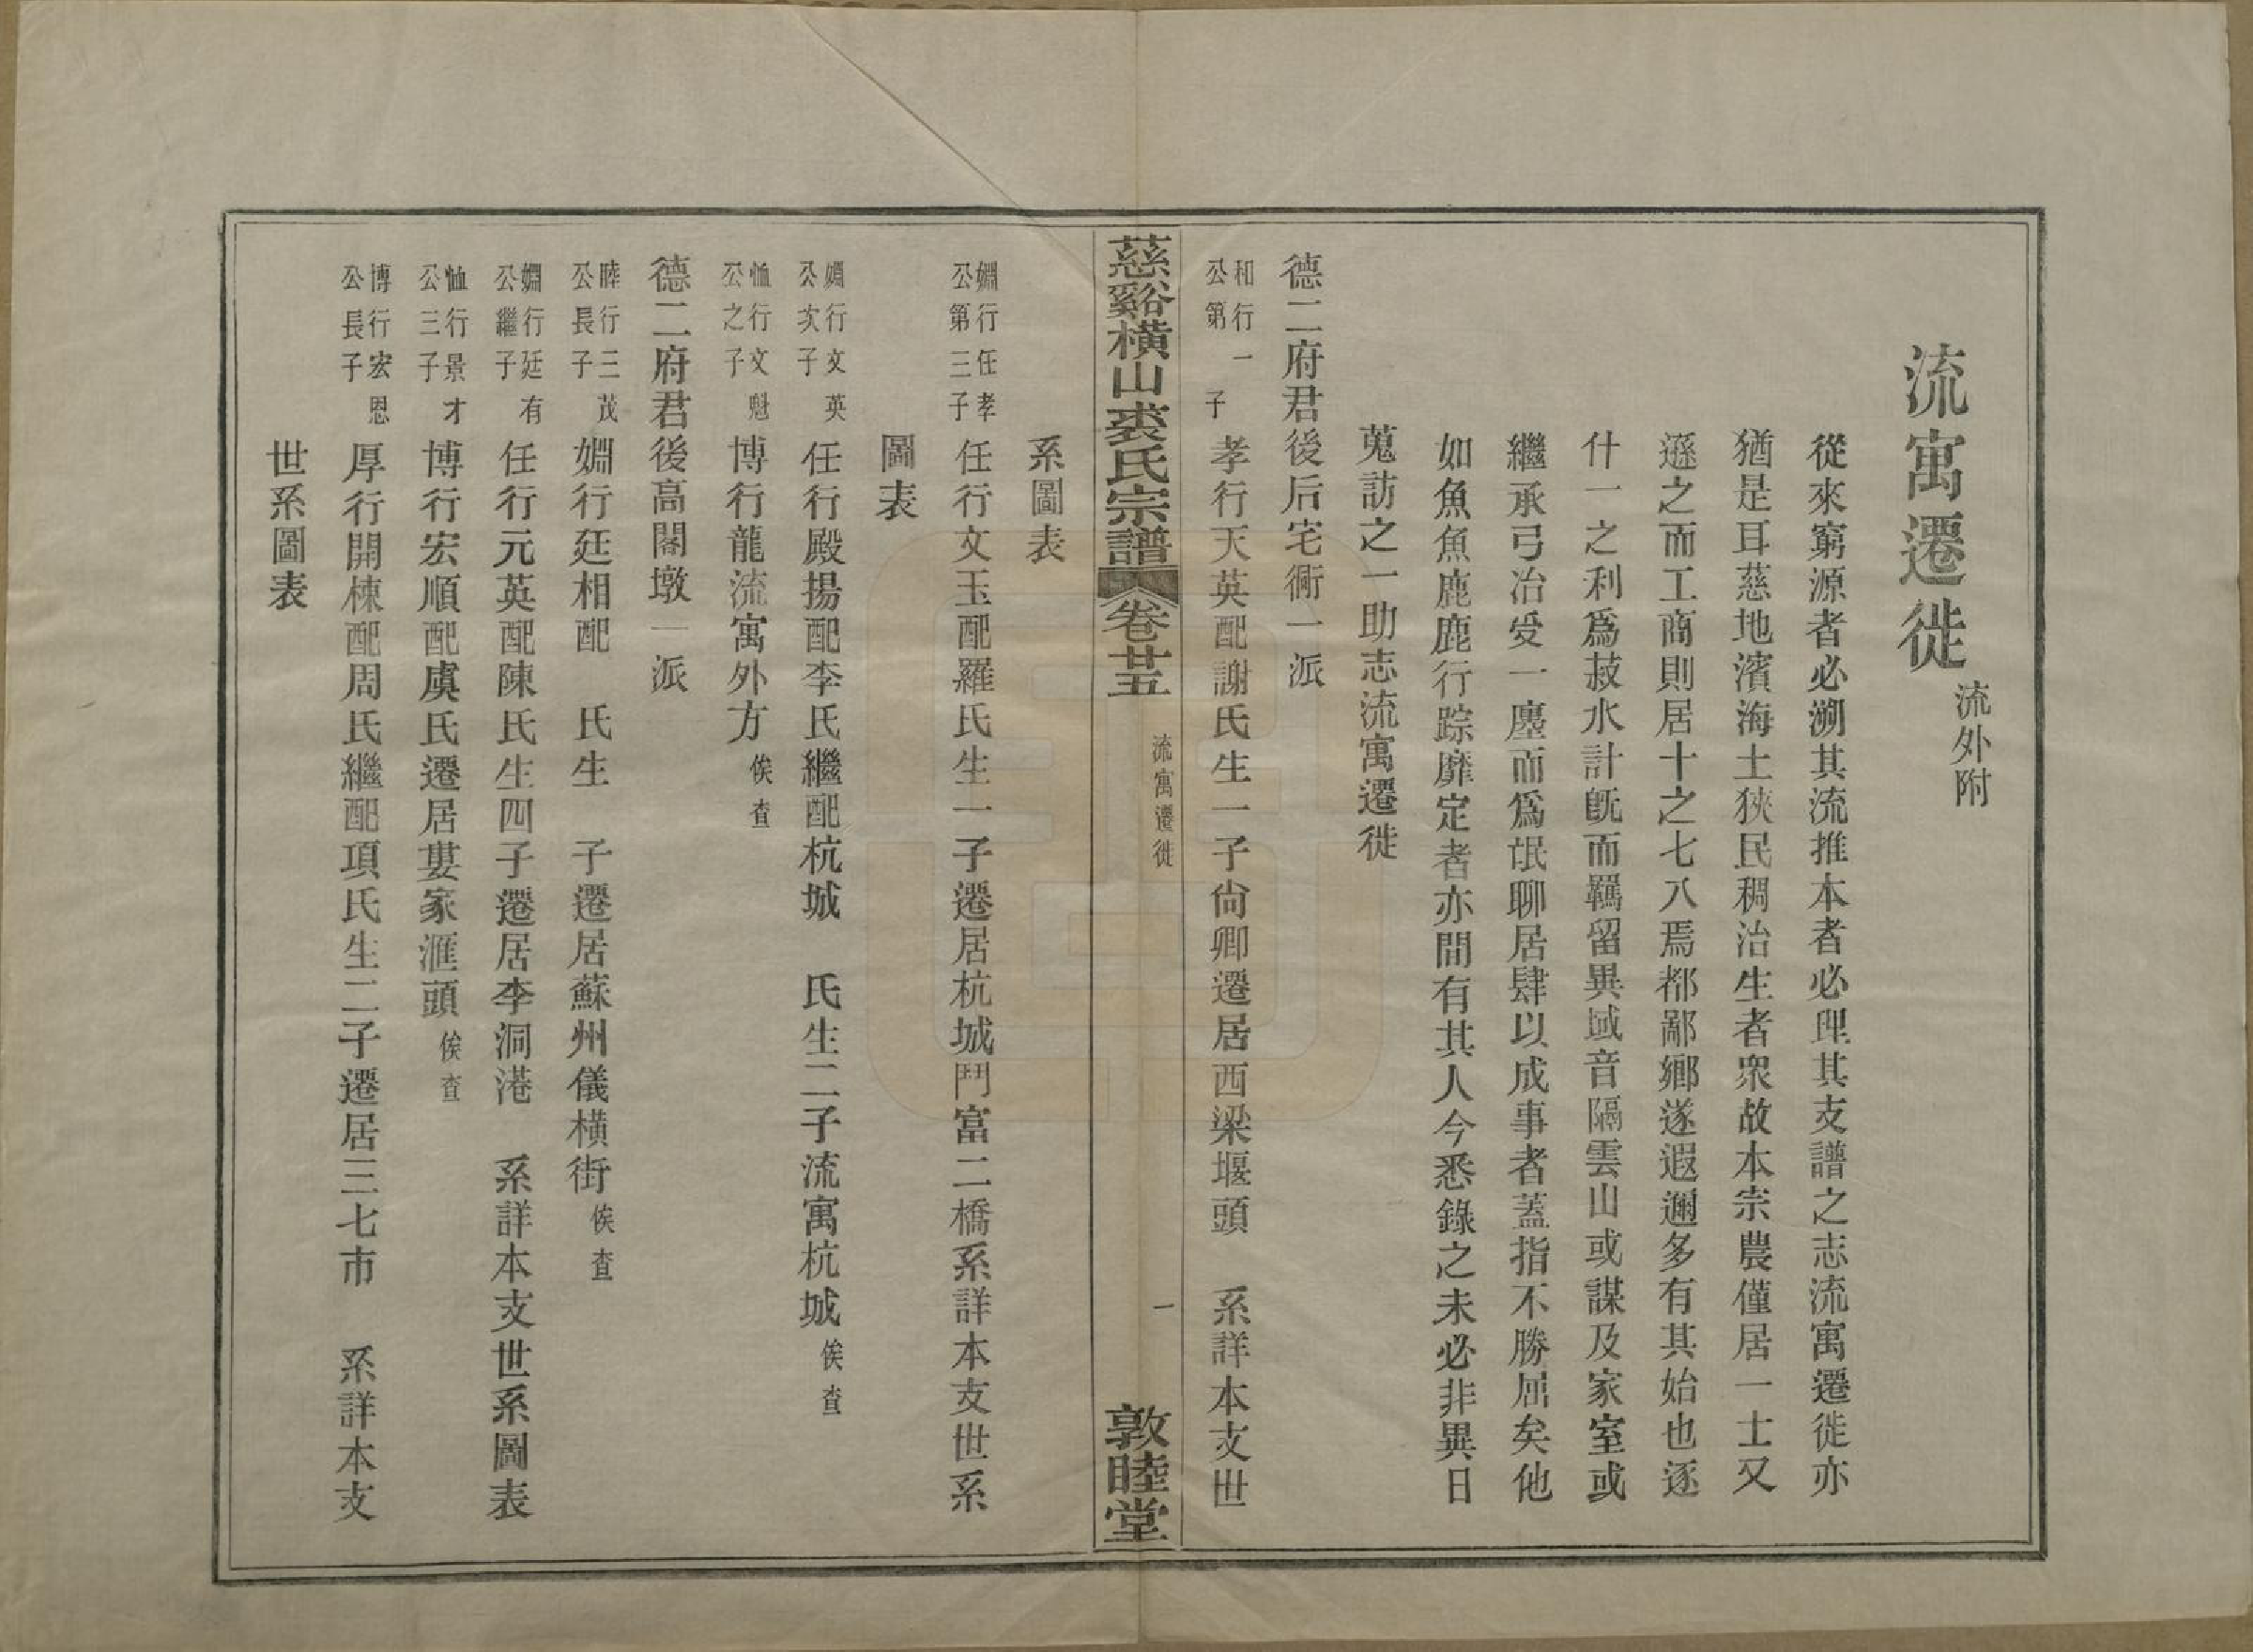 流寓遷徙流外附
從來窮源者必溯其流推本者必理其支譜之志流寓遷徙亦
猶是耳慈地濱海土狹民稠治生者衆故本宗農僅居一士又
遜之而工商則居十之七八焉都鄙鄉遂遐邇多有其始也逐
什一之利爲菽水計旣而羈留異域音隔雲山或謀及家室或
繼承弓冶受一廛而爲氓聊居肆以成事者蓋指不勝屈矣他
如魚魚鹿鹿行踪靡定者亦間有其人今悉錄之未必非異日
蒐訪之一助志流寓遷徙
德二府君後后宅衕一派
和行一公第子孝行天英配謝氏生一子尙卿遷居西梁堰頭 系詳本支世
慈谿橫山裘氏宗譜 卷廿五 流寓遷徙 一 敦睦堂
系圖表
婣行任孝公第三子任行文玉配羅氏生一子遷居杭城鬥富二橋系詳本支世系
圖表
婣行文英公次子任行殿揚配李氏繼配杭城 氏生二子流寓杭城俟查
恤行文魁公之子博行龍流寓外方俟查
德二府君後高閣墩一派
睦行三茂公長子婣行廷相配 氏生 子遷居蘇州儀橫街俟查
婣行廷有公繼子任行元英配陳氏生四子遷居李洞港 系詳本支世系圖表
恤行景才公三子博行宏順配虞氏遷居婁家滙頭俟查
博行宏恩公長子厚行開棟配周氏繼配項氏生二子遷居三七市 系詳本支
世系圖表